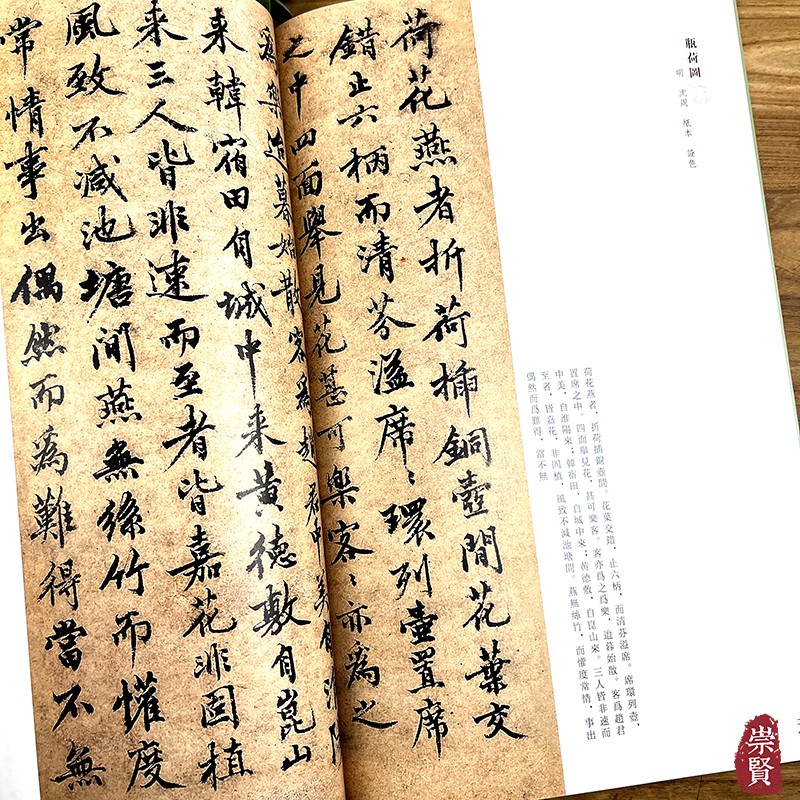 瓶荷圖
明 沈周 紙本 設色
荷花燕者折荷插銅壺間花葉交
錯止六柄而清芬溢席〻環列壺置席
之中四面舉見花甚可樂客〻亦為之
樂迨暮始散客為趙君中美自淮陽
來韓宿田自城中來黄德敷自崑山
來三人皆非速而至者皆嘉花非固植
風致不減池塘間燕無絲竹而懽度
常情事出偶然而為難得當不無
荷花燕者，折荷插銅壺間。花葉交錯，止六柄，而清芬溢席。席環列壺，
置席之中。四面舉見花，甚可樂客。客亦爲之爲樂，迨暮始散。客爲趙君
中美，自淮陽來；韓宿田，自城中來；黃德敷，自崑山來。三人皆非速而
至者，皆嘉花，非固植，風致不減池塘間。燕無絲竹，而懽度常情，事出
偶然而爲難得，當不無
崇賢